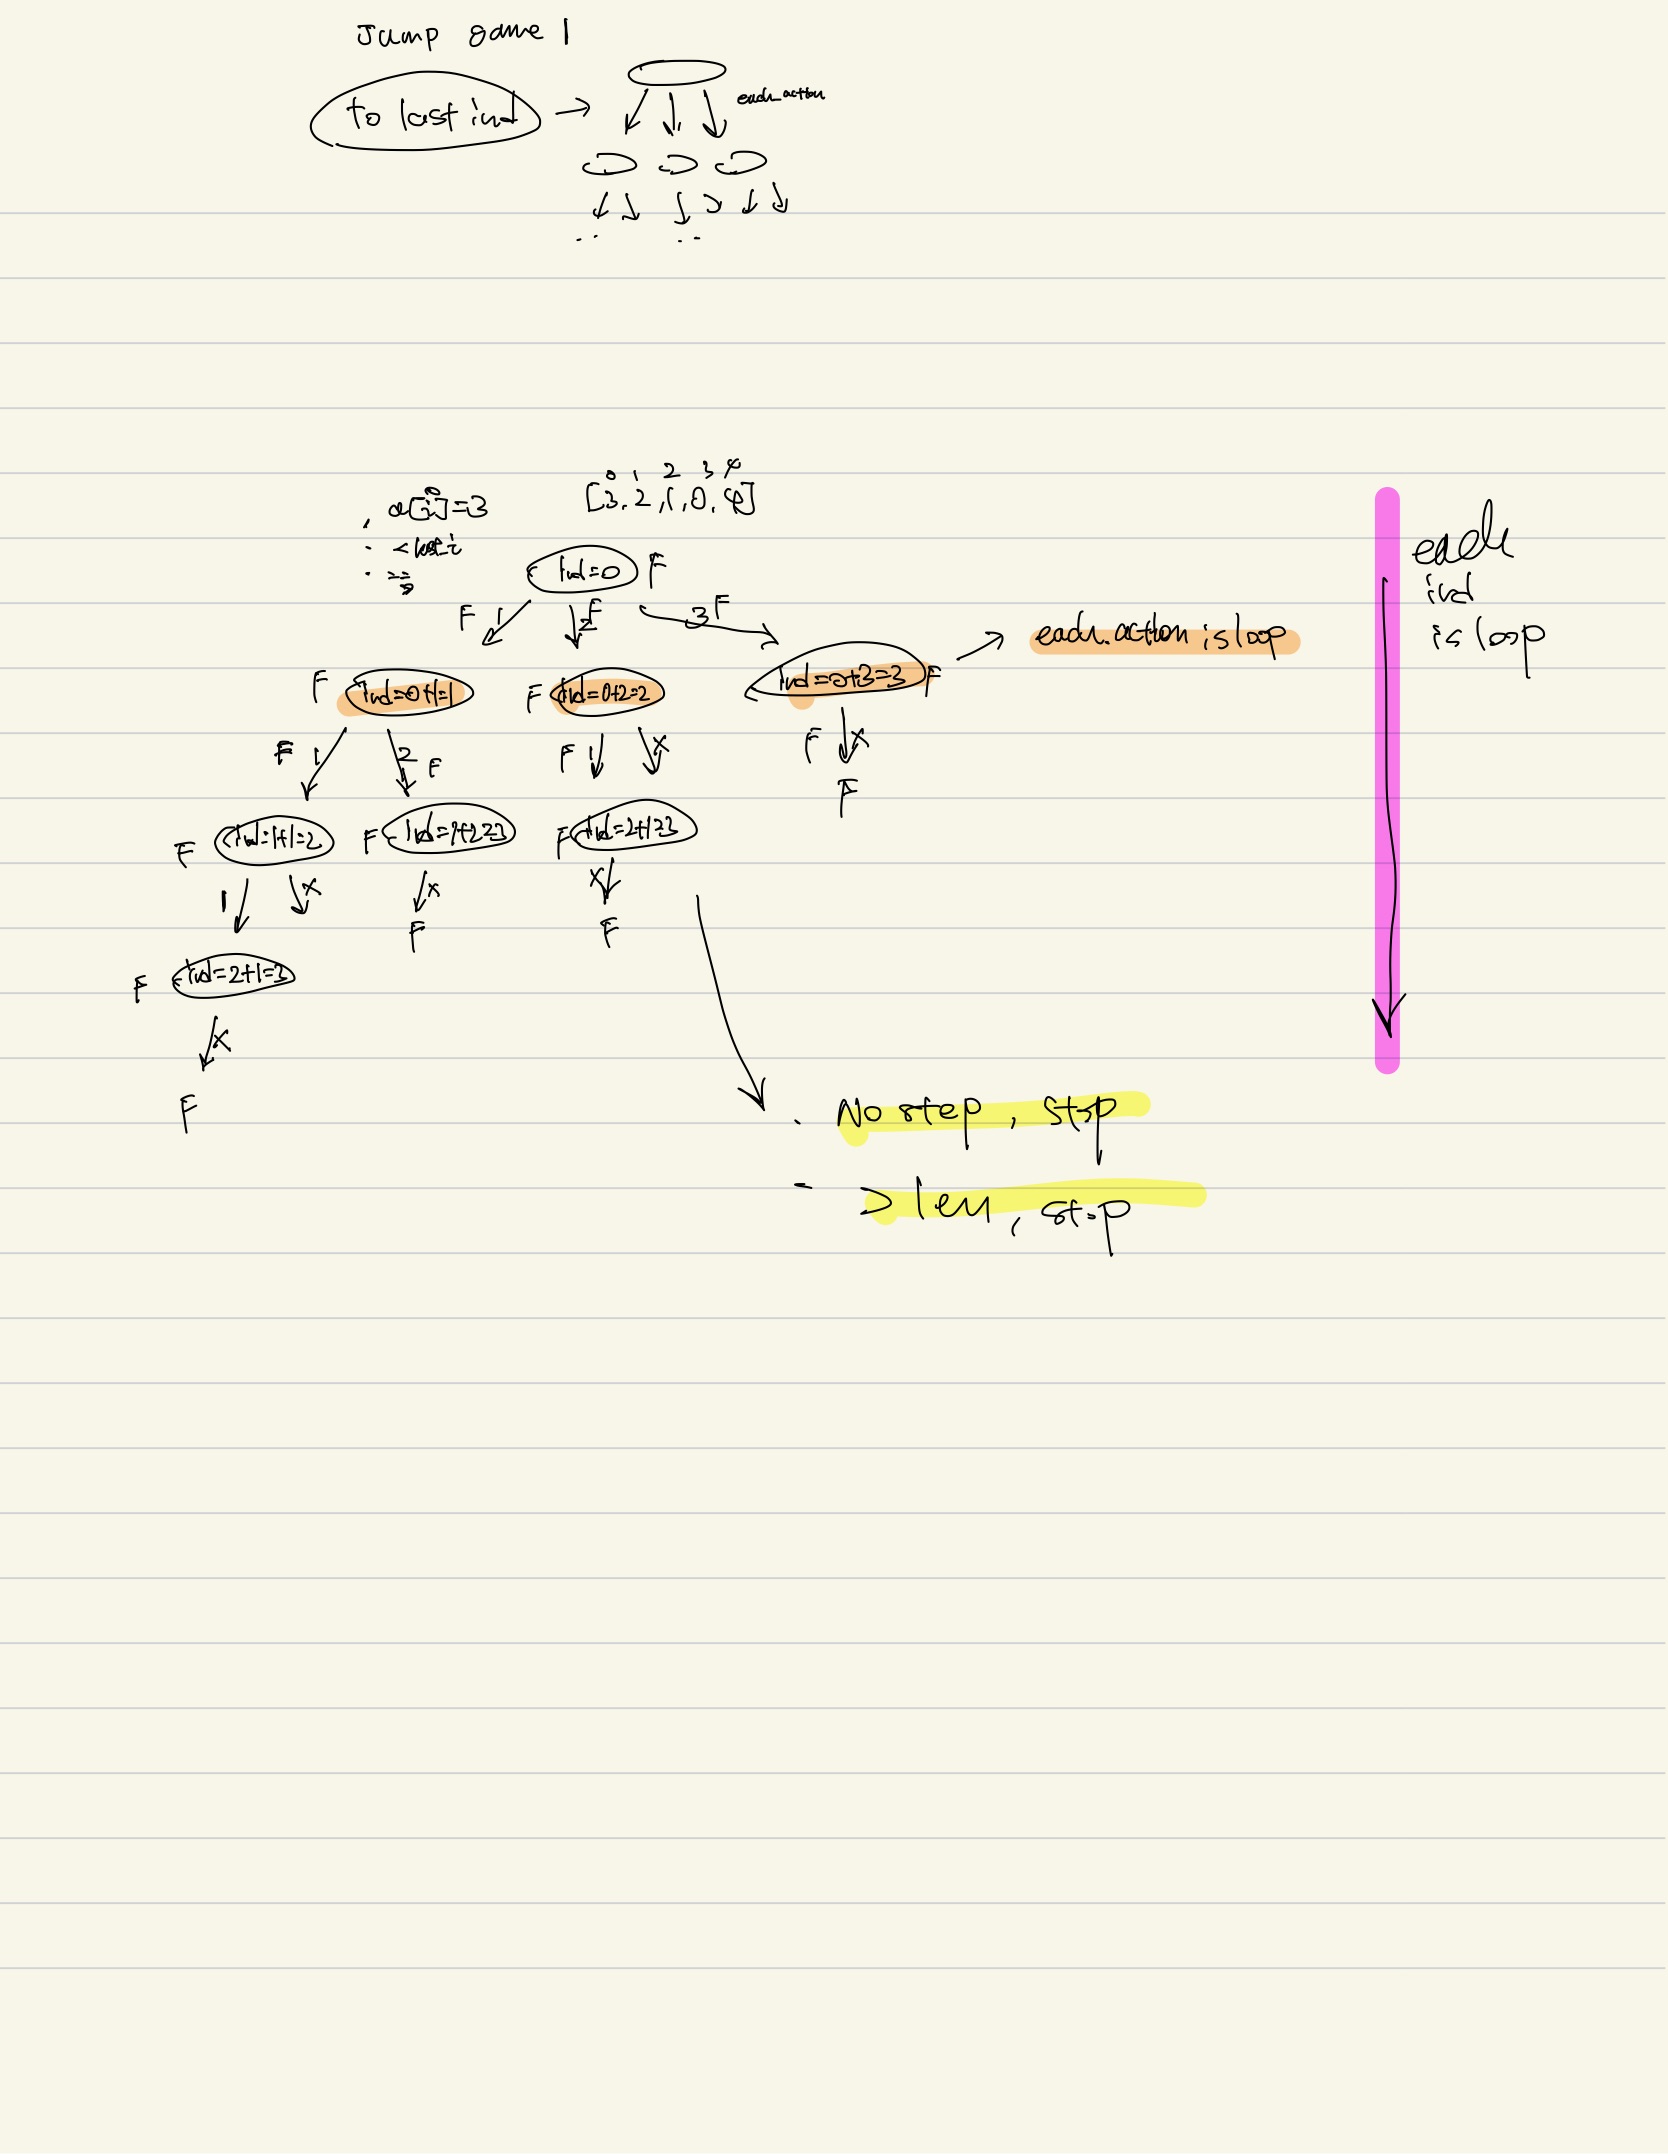 Jump game 1
to last ind →
each_action
0 1 2 3 4
[3, 2, 1, 0, 4]
a[i]=3
0
< last i
ind=0 F
F 1 2 F 3 F
F ind=0+1=1
F ind=0+2=2
ind=0+3=3 F
→ each action is loop
each
ind
is loop
F 1 2 F
F 1 X
F X
F
F ind=1+1=2
F ind=1+2=3
F ind=2+1=3
1 X
X
F
X
F
F ind=2+1=3
X
F
. No step, stop
- > len, stop